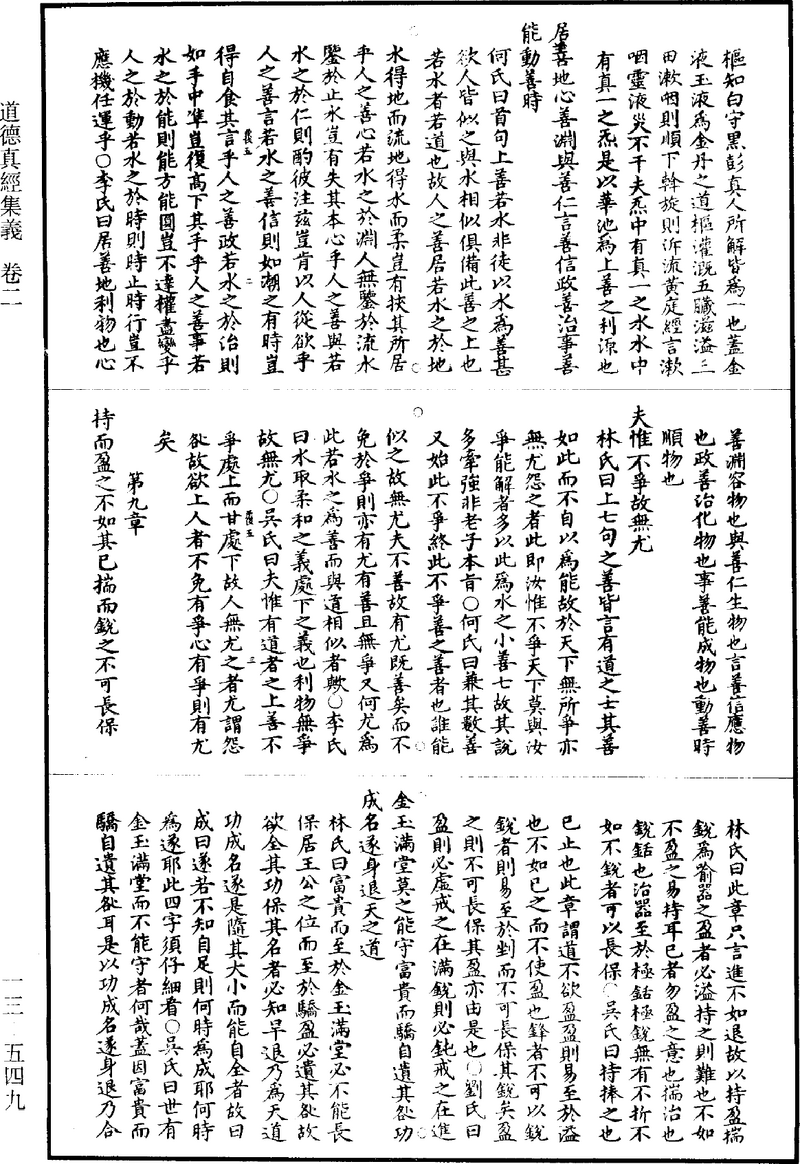 道德真經集義 卷二
一三 五四九
樞知白守黑彭真人所解皆爲一也蓋金
液玉液爲金丹之道樞灌溉五臟滋溢三
田漱咽則順下斡旋則泝流黃庭經言漱
咽靈液災不干夫炁中有真一之水水中
有真一之炁是以華池爲上善之利源也
居善地心善淵與善仁言善信政善治事善
能動善時
何氏曰首句上善若水非徒以水爲善甚
欲人皆似之與水相似俱備此善之上也
若水者若道也故人之善居若水之於地
水得地而流地得水而柔豈有挾其所居
乎人之善心若水之於淵人無鑒於流水
鑒於止水豈有失其本心乎人之善與若
水之於仁則酌彼注茲豈肯以人從欲乎
人之善言若水之善信則如潮之有時豈
得自食其言乎人之善政若水之於治則
如手中準豈復高下其手乎人之善事若
水之於能則能方能圓豈不達權盡變乎
人之於動若水之於時則時止時行豈不
應機任運乎○李氏曰居善地利物也心
善淵容物也與善仁生物也言善信應物
也政善治化物也事善能成物也動善時
順物也
夫惟不爭故無尤
林氏曰上七句之善皆言有道之士其善
如此而不自以爲能故於天下無所爭亦
無尤怨之者此即汝惟不爭天下莫與汝
爭能解者多以此爲水之小善七故其說
多牽強非老子本旨○何氏曰兼其數善
又始此不爭終此不爭善之善者也誰能
似之故無尤夫不善故有尤既善矣而不
免於爭則亦有尤有善且無爭又何尤爲
此若水之爲善而與道相似者歟○李氏
曰水取柔和之義處下之義也利物無爭
故無尤○吳氏曰夫惟有道者之上善不
爭處上而甘處下故人無尤之者尤謂怨
欲故欲上人者不免有爭心有爭則有尤
矣
第九章
持而盈之不如其已揣而銳之不可長保
林氏曰此章只言進不如退故以持盈揣
銳爲喻器之盈者必溢持之則難也不如
不盈之易持耳已者勿盈之意也揣治也
銳銛也治器至於極銛極銳無有不折不
如不銳者可以長保○吳氏曰持捧之也
已止也此章謂道不欲盈盈則易至於溢
也不如已之而不使盈也鋒者不可以銳
銳者則易至於剉而不可長保其銳矣盈
之則不可長保其盈亦由是也○劉氏曰
盈則必虛戒之在滿銳則必鈍戒之在進
金玉滿堂莫之能守富貴而驕自遺其咎功
成名遂身退天之道
林氏曰富貴而至於金玉滿堂必不能長
保居王公之位而至於驕盈必遺其咎故
欲全其功保其名者必知早退乃爲天道
功成名遂是隨其大小而能自全者故曰
成曰遂若不知自足則何時爲成耶何時
爲遂耶此四字須仔細看○吳氏曰世有
金玉滿堂而不能守者何哉蓋因富貴而
驕自遺其咎耳是以功成名遂身退乃合